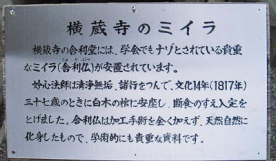 横蔵寺のミイラ
横蔵寺の舎利堂には、学会でもナゾとされている貴重
なミイラ(舎利仏)が安置されています。
妙心法師は清浄無垢、諸行をつんで、文化14年(1817年)
三十七歳のときに白木の棺に安座し、断食のすえ入定を
とげました。舎利仏は加工手術を全く加えず、天然自然に
化身したもので、学術的にも貴重な資料です。